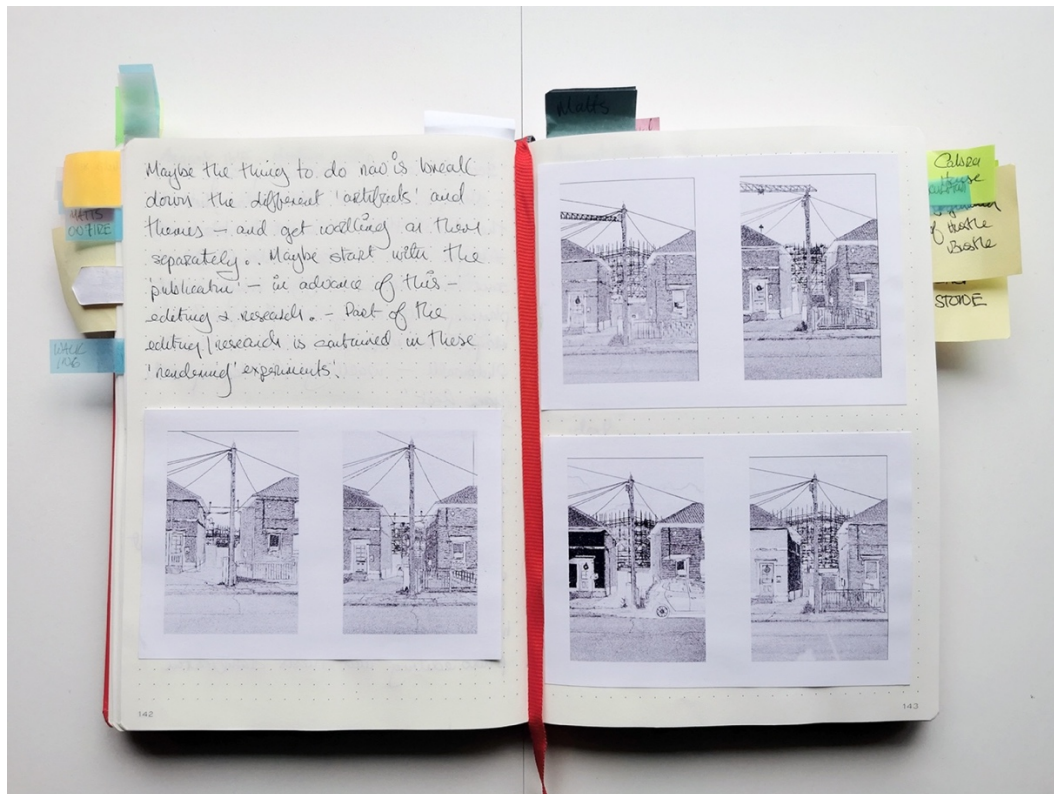 Matts
Maybe the thing to do now is break
down the different 'artifacts' and
themes – and get walking on them
separately.. Maybe start with the
'publication' – in advance of this –
editing & research. – Part of the
editing / research is contained in these
'rendering' experiments'.
MATTS
ON FIRE
WALK
House
of Hustle
Bustle
STONE
142
143